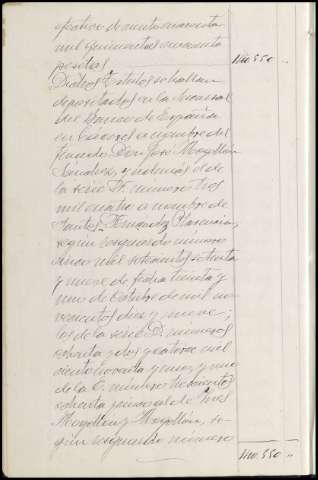 efectivo de ciento cuarenta
mil quinientas cincuenta
pesetas 140.550 "
Dichos Títulos se hallan
depositados en la Sucursal
del Banco de España
en Cáceres a nombre del
finado Don José Mogollón
Sánchez, y además el de
la serie D. número tres
mil cuatro a nombre de
Santos Fernández Plasencia,
según resguardo número
cinco mil setecientos setenta
y nueve de fecha treinta y
uno de Octubre de mil no-
vecientos diez y nueve;
los de la serie D. números
ochenta y dos y catorce mil
ciento noventa y uno, y uno
de la C. número trescientos
ochenta y nueve, al de Inés
Mogollón y Mogollón, se-
gún resguardo número
140.550 "